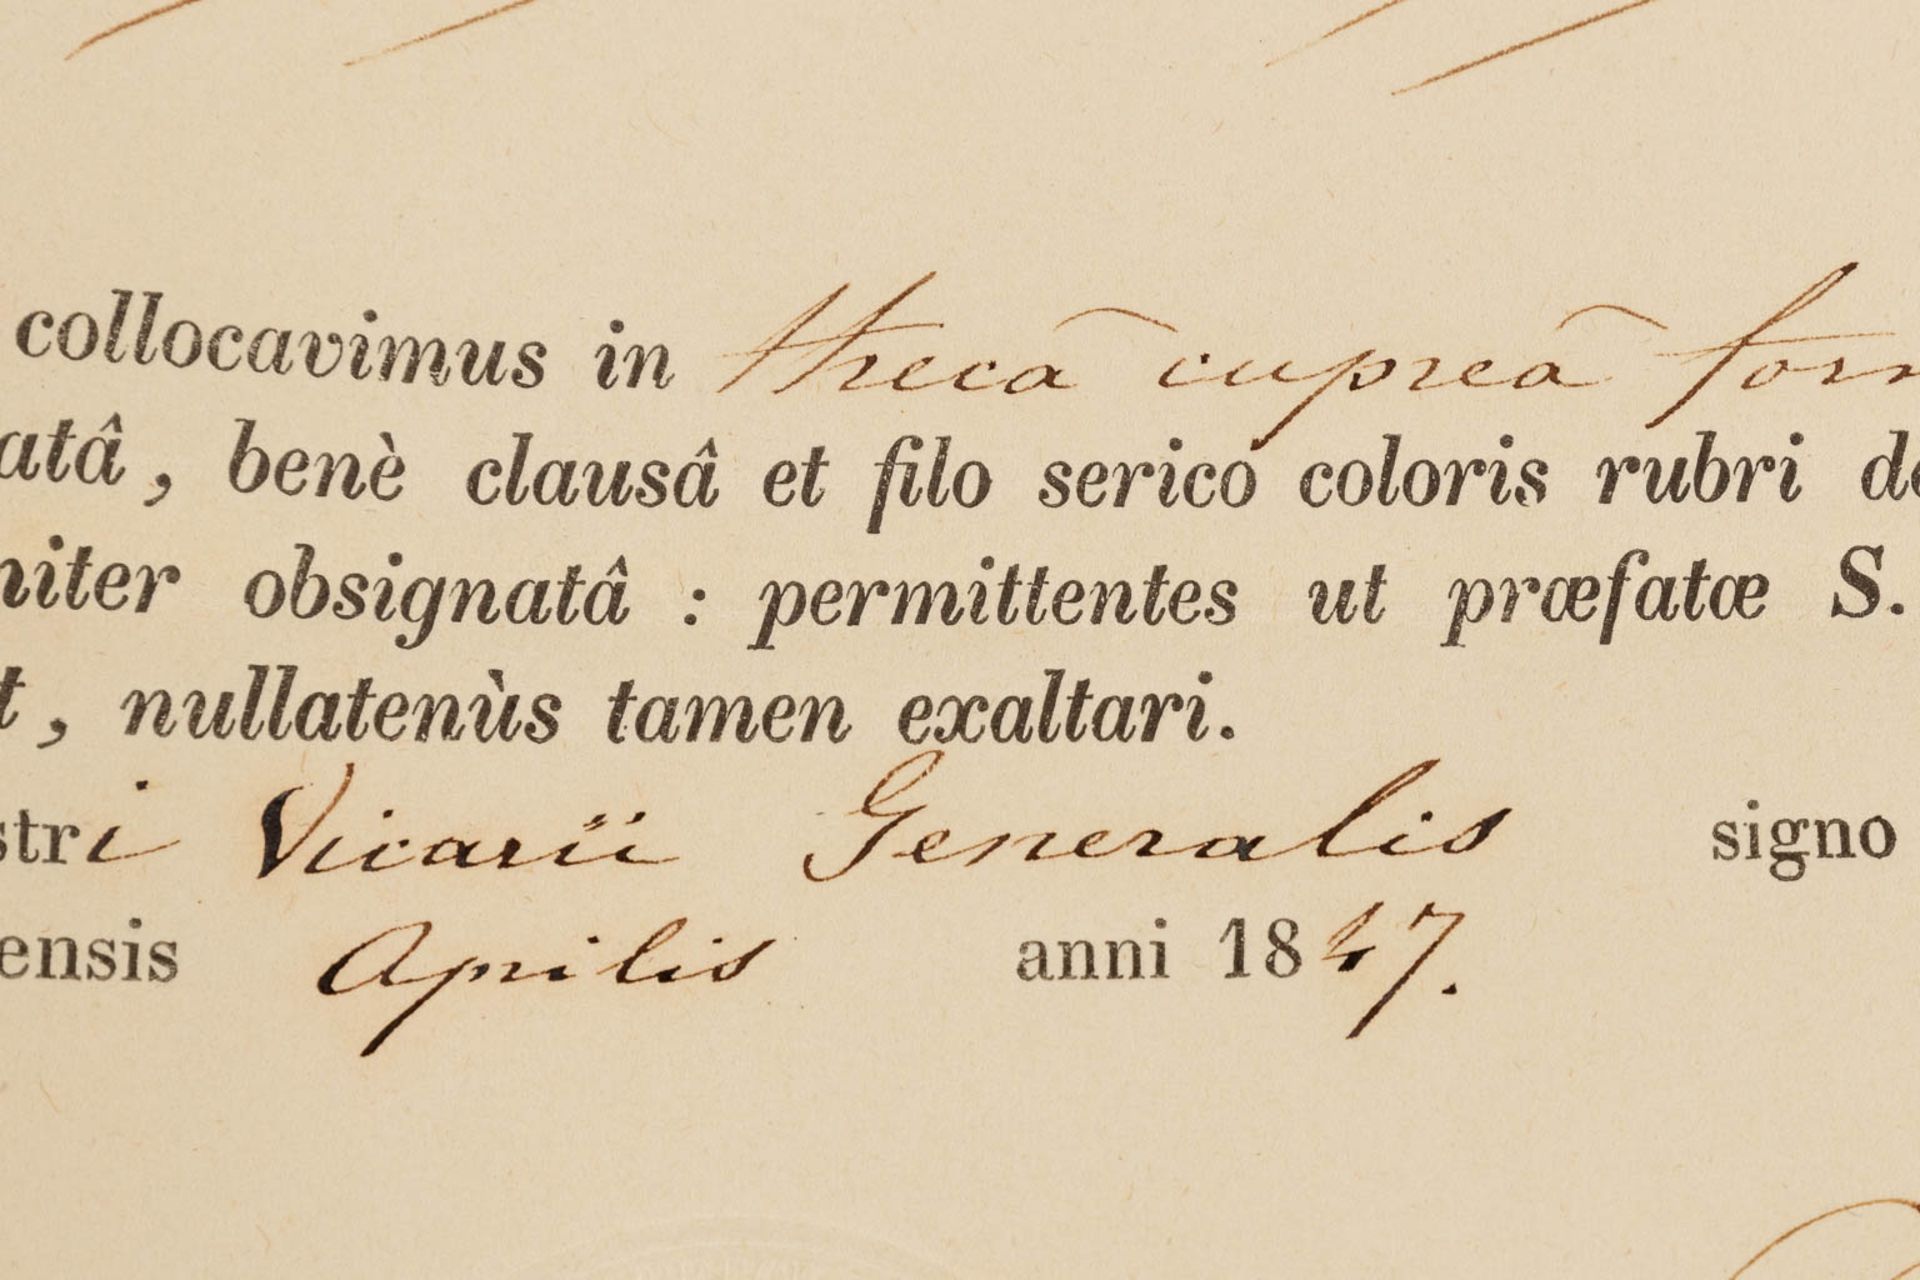 collocavimus in thecâ cupreâ forn
atâ, benè clausâ et filo serico coloris rubri de
niter obsignatâ : permittentes ut præfatæ S.
t, nullatenùs tamen exaltari.
stri Vicarii Generalis signo
ensis Aprilis anni 1847.